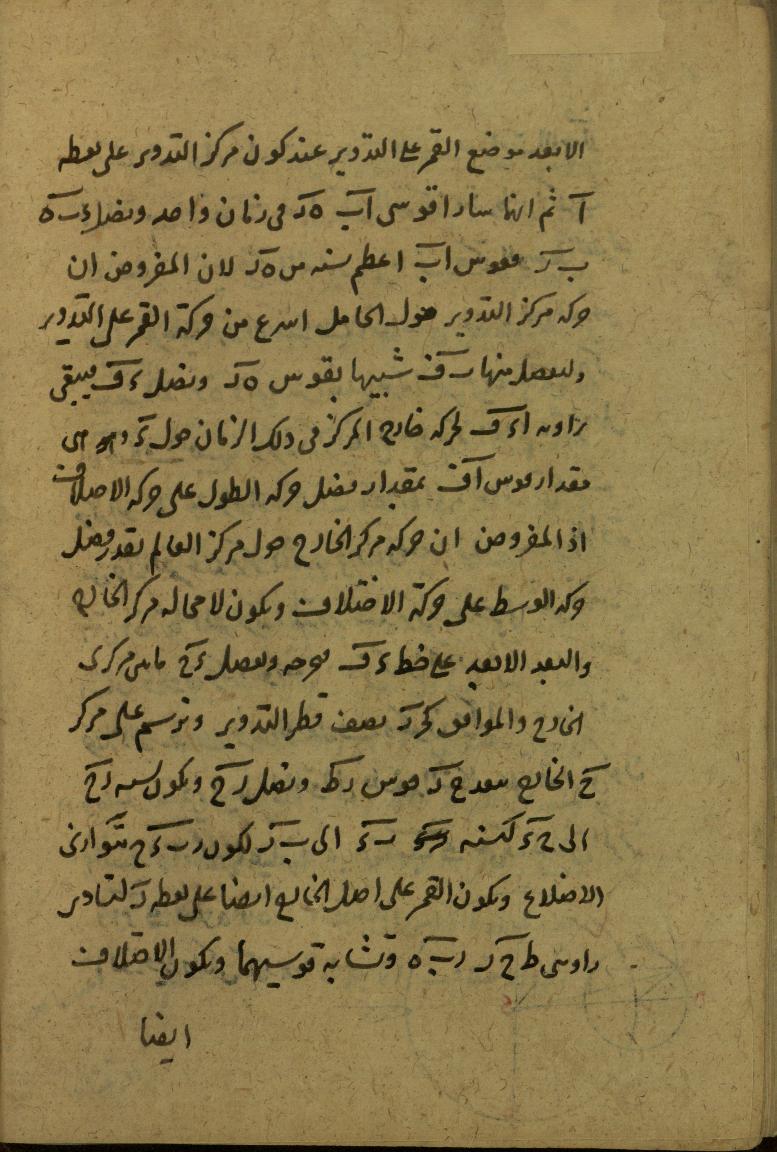 الابعد موضع القمر على التدوير عند كون مركز التدوير على نقطه
آ ثم انهما سارا قوسى آب ه‍ ر فى زمان واحد ونصل ء ب ه‍
ب ر فقوس اب اعظم نسبه من ه‍ ر لان المفروض ان
حركه مركز التدوير حول الحامل اسرع من حركة القمر على التدوير
وليفصل منها ب ف شبيها بقوس ه‍ ر ونصل ء ف فيبقى
زاويه ا ء ف لحركه خارج المركز فى ذلك الزمان حول ء وهى
مقدار قوس آف بمقدار فضل حركه الطول على حركه الاختلاف
اذ المفروض ان حركه مركز الخارج حول مركز العالم بقدر فضل
حركه الوسط على حركة الاختلاف ويكون لا محاله مركز الخارج
والبعد الابعد على خط ء ف فنخرجه ونفصل ء ح مابين مركزى
الخارج والموافق كحر نصف قطر التدوير ونرسم على مركز
ح الخارج ببعد ح ر قوس ر ط ونصل ر ح ويكون نسبه ر ح
الى ح ء كنسبه ب ء الى ب ر لكون ر ب ء ح متوازى
الاضلاع ويكون القمر على اصل الخارج ايضا على نقطه ر لتساوى
زاويتى ط ح ر ر ب ه‍ وتشابه قوسيهما ويكون الاختلاف
ايضا